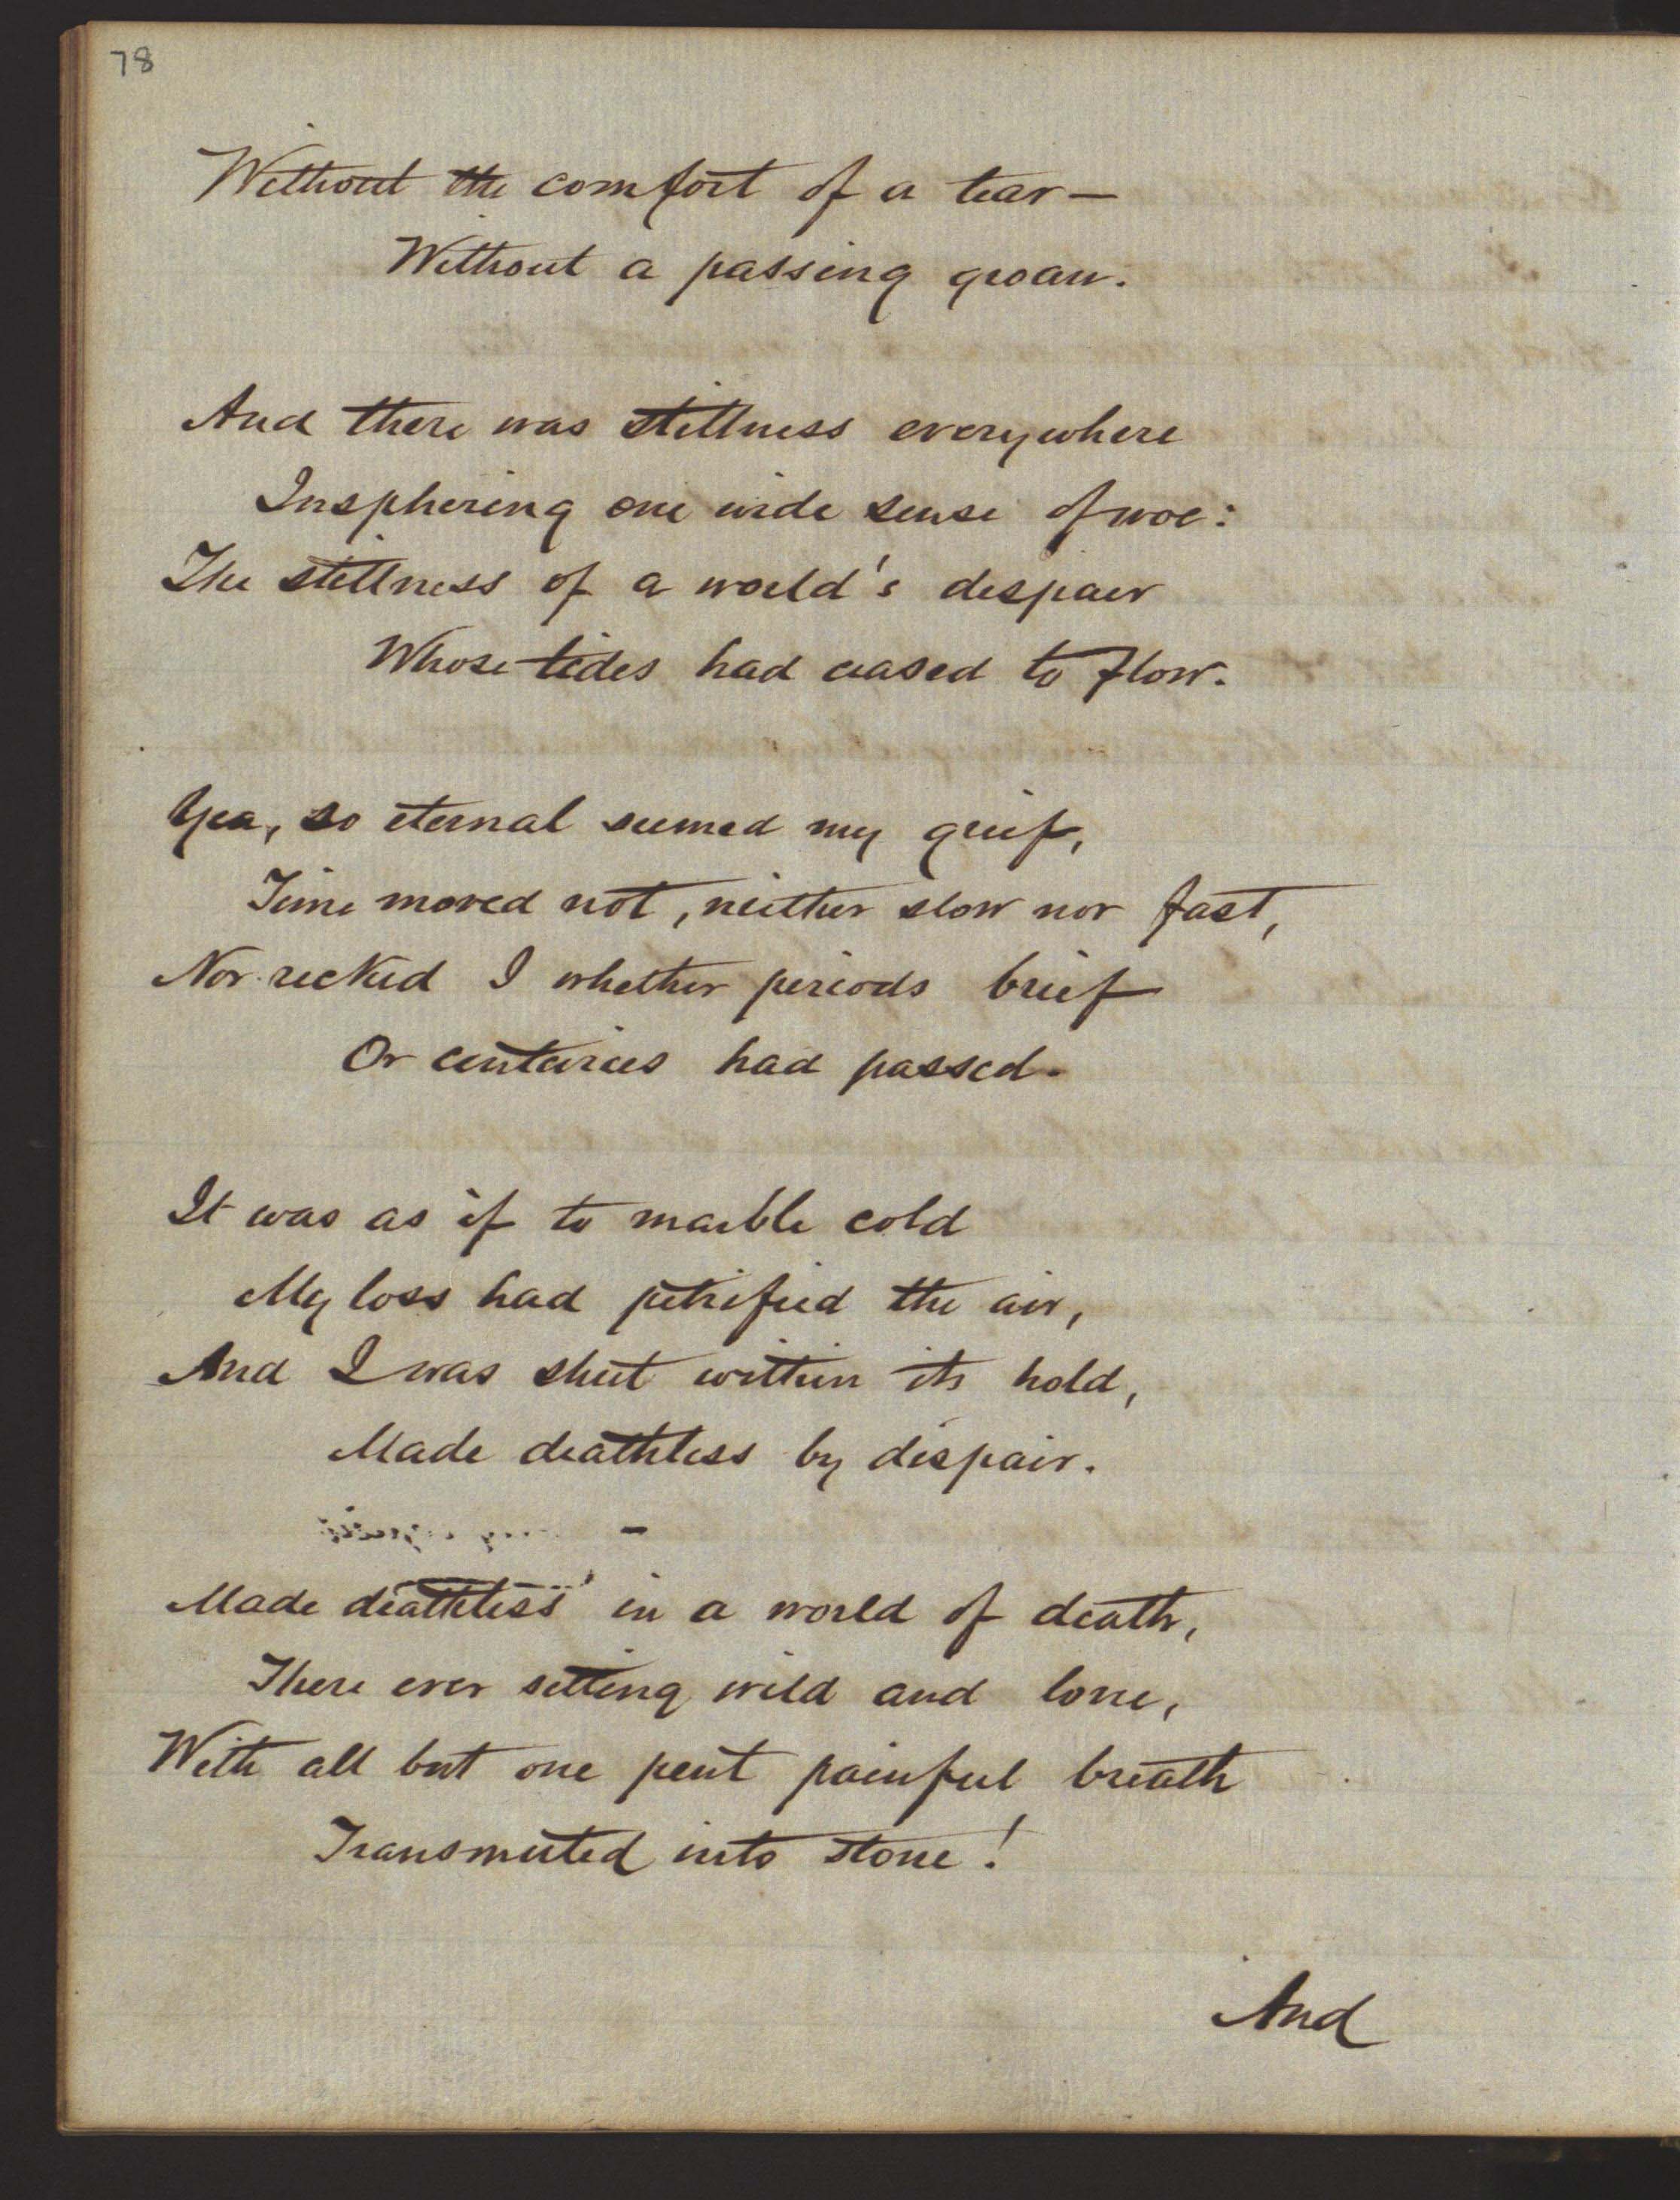 78
Without the comfort of a tear—
Without a passing groan.
And there was stillness everywhere
Insphering one wide sense of woe:
The stillness of a world's despair
Whose tides had ceased to flow.
Yea, so eternal seemed my grief,
Time moved not, neither slow nor fast,
Nor recked I whether periods brief
Or centuries had passed.
It was as if to marble cold
My loss had petrified the air,
And I was shut within its hold,
Made deathless by despair.
Made deathless in a world of death,
There ever sitting wild and lone,
With all but one pent painful breath
Transmuted into stone!
And